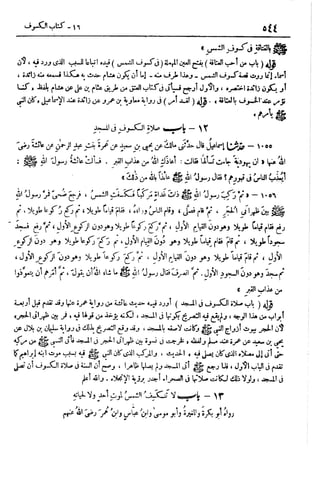 ٥٤٤
١٦ - كتاب الكسوف
ﷺ بالعتاقة في كسوف الشمس »
قوله ( باب من أحب العتاقة ) بفتح العين المهملة ( في كسوف الشمس ) قيده اتباعا للسبب الذى ورد فيه ، لأن
أسماء إنما روت قصة كسوف الشمس - وهذا طرف منه - إما أن يكون هشام حدث به هكذا فسمعه منه زائدة ،
أو يكون زائدة اختصره ، والأول أرجح فسيأتى فى كتاب العتق من طريق عثام بن على عن هشام بلفظ « كنا
نؤمر عند الخسوف بالعتاقة » . قوله ( لقد أمر ) فى رواية معاوية بن عمرو عن زائدة عند الإسماعيلى « كان النبى
ﷺ يأمرهم »
١٢ - باب صلاة الكسوف في المسجد
١٠٥٥ - حدثنا إسماعيل قال حدثني مالك عن يحيى بن سعيد عن عمرة بنت عبد الرحمن عن عائشة رضي
الله عنها « أن يهودية جاءت تسألها فقالت : أعاذك الله من عذاب القبر . فسألت عائشة رسول الله ﷺ :
أيعذب الناس في قبورهم ؟ فقال رسول الله ﷺ عائذا بالله من ذلك »
١٠٥٦ - « ثم ركب رسول الله ﷺ ذات غداة مركبا فكسفت الشمس ، فرجع ضحى فمر رسول الله
ﷺ بين ظهراني الحجر ، ثم قام فصلى ، وقام الناس وراءه ، فقام قياما طويلا ، ثم ركع ركوعا طويلا ، ثم
رفع فقام قياما طويلا وهو دون القيام الأول ، ثم ركع ركوعا طويلا وهو دون الركوع الأول ، ثم رفع فسجد
سجودا طويلا ، ثم قام فقام قياما طويلا وهو دون القيام الأول ، ثم ركع ركوعا طويلا وهو دون الركوع
الأول ، ثم قام قياما طويلا وهو دون القيام الأول ، ثم ركع ركوعا طويلا وهو دون الركوع الأول ،
ثم سجد وهو دون السجود الأول . ثم انصرف فقال رسول الله ﷺ ما شاء الله أن يقول ، ثم أمرهم أن يتعوذوا
من عذاب القبر »
قوله ( باب صلاة الكسوف فى المسجد ) أورد فيه حديث عائشة من رواية عمرة عنها وقد تقدم قبل أربعة
أبواب من هذا الوجه ، ولم يقع فيه التصريح بكونها فى المسجد ، لكنه يؤخذ من قولها فيه « فمر بين ظهرانى الحجر »
لأن الحجر بيوت أزواج النبى ﷺ وكانت لاصقة بالمسجد ، وقد وقع التصريح بذلك فى رواية سليمان بن بلال عن
يحيى بن سعيد عن عمرة عند مسلم ولفظه « فخرجت فى نسوة بين ظهرانى الحجر فى المسجد فأتى النبى ﷺ من مركبه
حتى أتى إلى مصلاه الذى كان يصلى فيه » الحديث ، والمركب الذى كان النبى ﷺ فيه بسبب موت ابنه إبراهيم كما
تقدم فى الباب الأول ، فلما رجع ﷺ أتى المسجد ولم يصلها ظاهرا ، وصح أن السنة فى صلاة الكسوف أن تصلى
فى المسجد ، ولولا ذلك لكانت صلاتها فى الصحراء أجدر برؤية الانجلاء . والله أعلم
١٣ - باب لا تنكسف الشمس لموت أحد ولا لحياته
رواه أبو بكرة والمغيرة وأبو موسى وابن عباس وابن عمر رضي الله عنهم